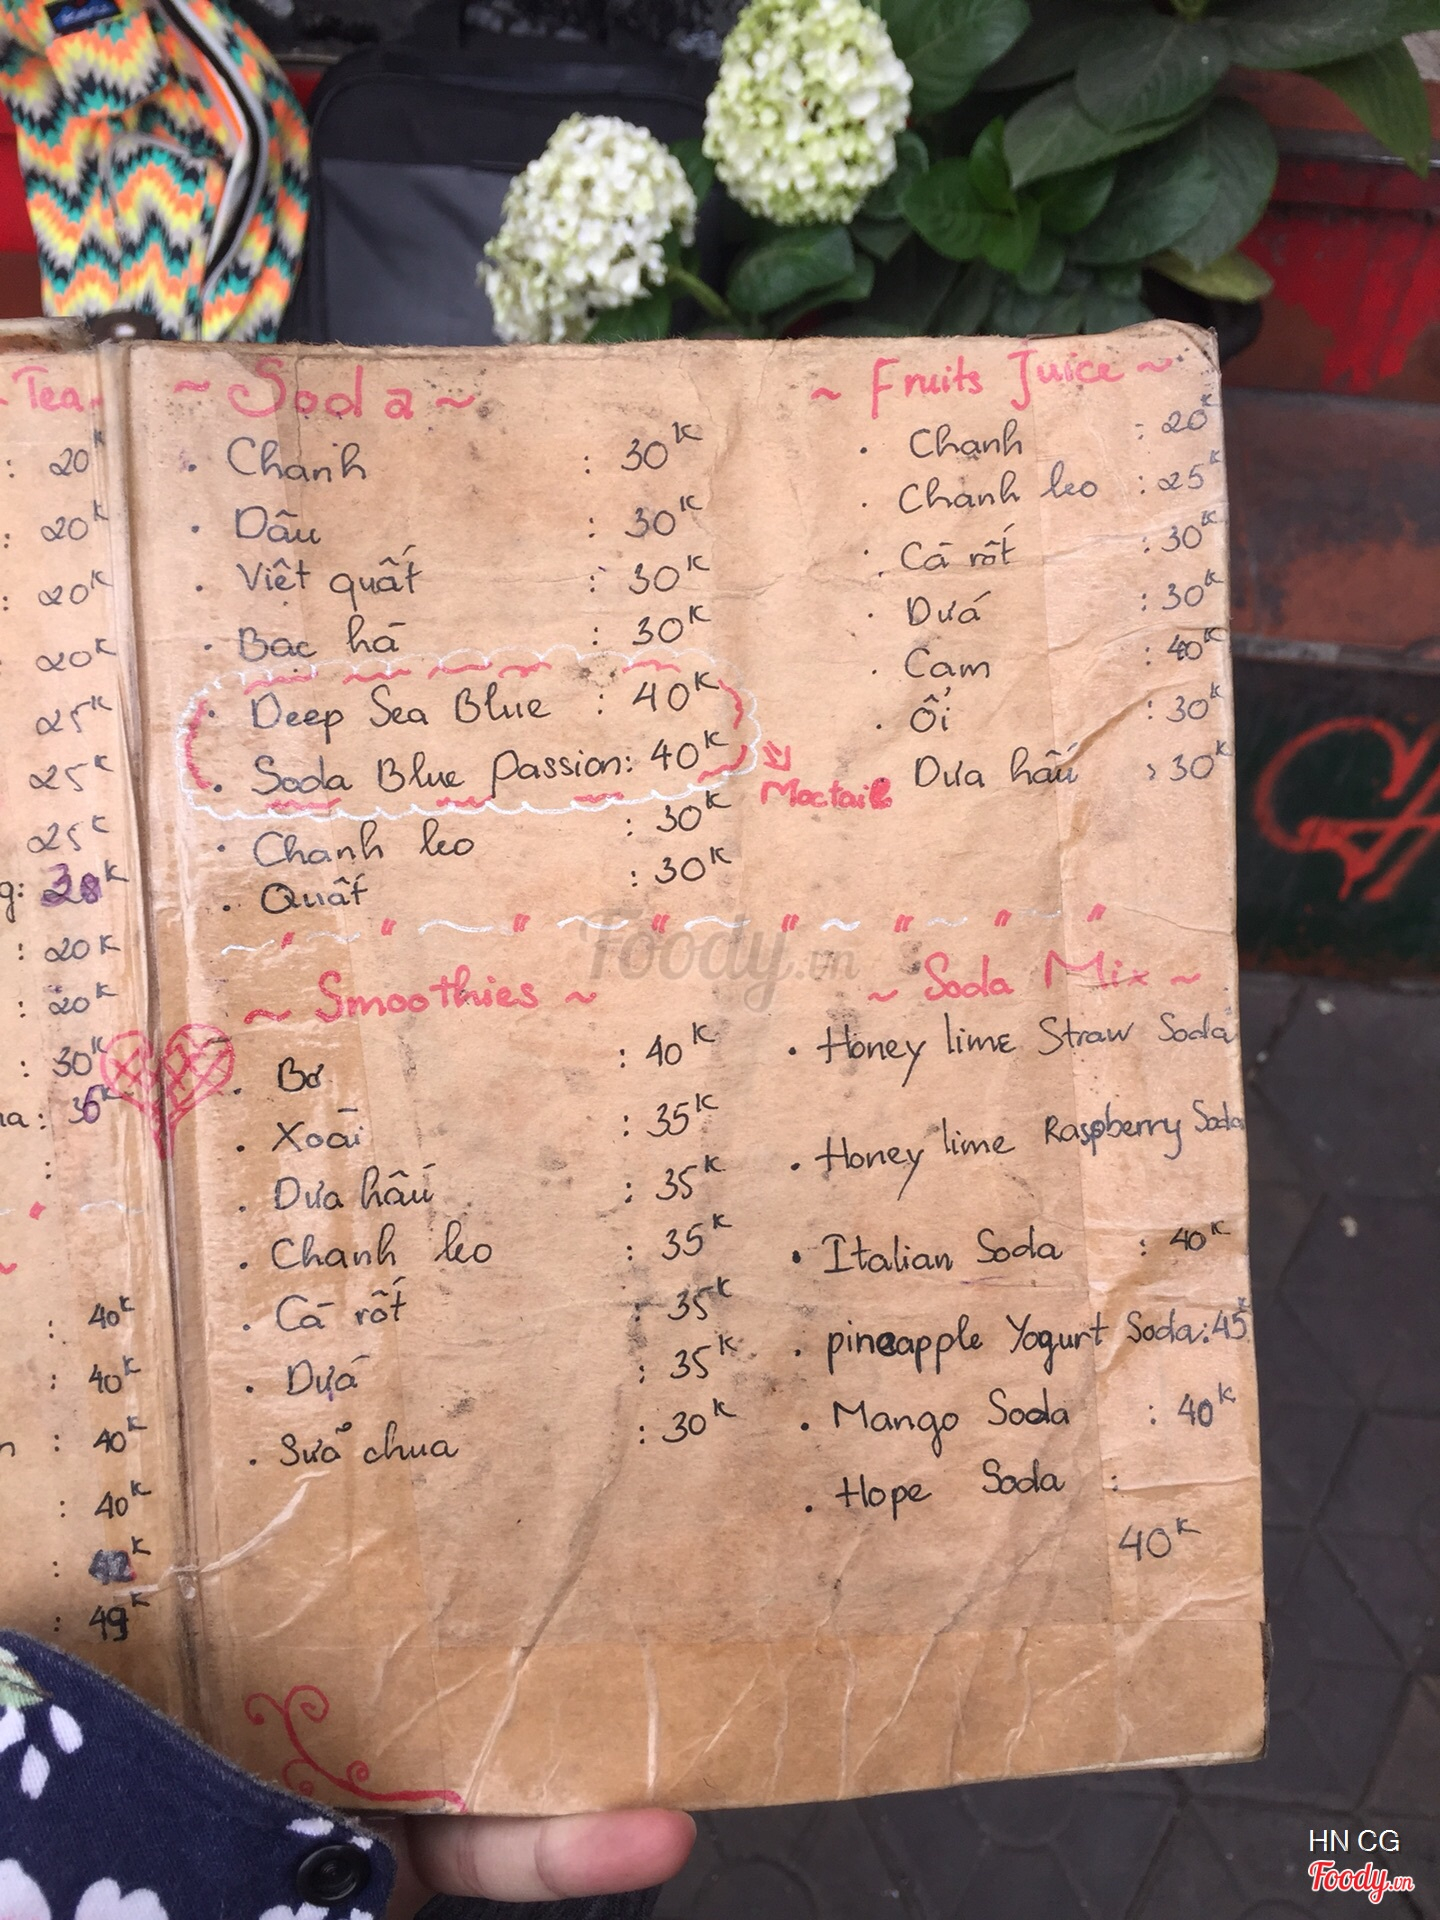 Tea
: 20K
: 20K
: 20K
20K
25K
25K
25K
g: 38K
: 20K
: 20K
: 30K
na: 35K
:
: 40K
: 40K
n : 40K
: 40K
: 42K
: 49K
~ Soda ~
. Chanh : 30K
. Dâu : 30K
. Việt quất : 30K
. Bạc hà : 30K
. Deep Sea Blue : 40K
. Soda Blue Passion: 40K
Moctail
. Chanh leo : 30K
. Quất : 30K
~ Fruits Juice ~
. Chanh : 20K
. Chanh leo : 25K
. Cà rốt : 30K
. Dứa : 30K
. Cam : 40K
. Ổi : 30K
. Dưa hấu : 30K
Foody.vn
~ Smoothies ~
. Bơ : 40K
. Xoài : 35K
. Dưa hấu : 35K
. Chanh leo : 35K
. Cà rốt : 35K
. Dứa : 35K
. Sữa chua : 30K
~ Soda Mix ~
. Honey lime Straw Soda
. Honey lime Raspberry Soda
. Italian Soda : 40K
. pineapple Yogurt Soda: 45K
. Mango Soda : 40K
. Hope Soda :
40K
HN CG
Foody.vn